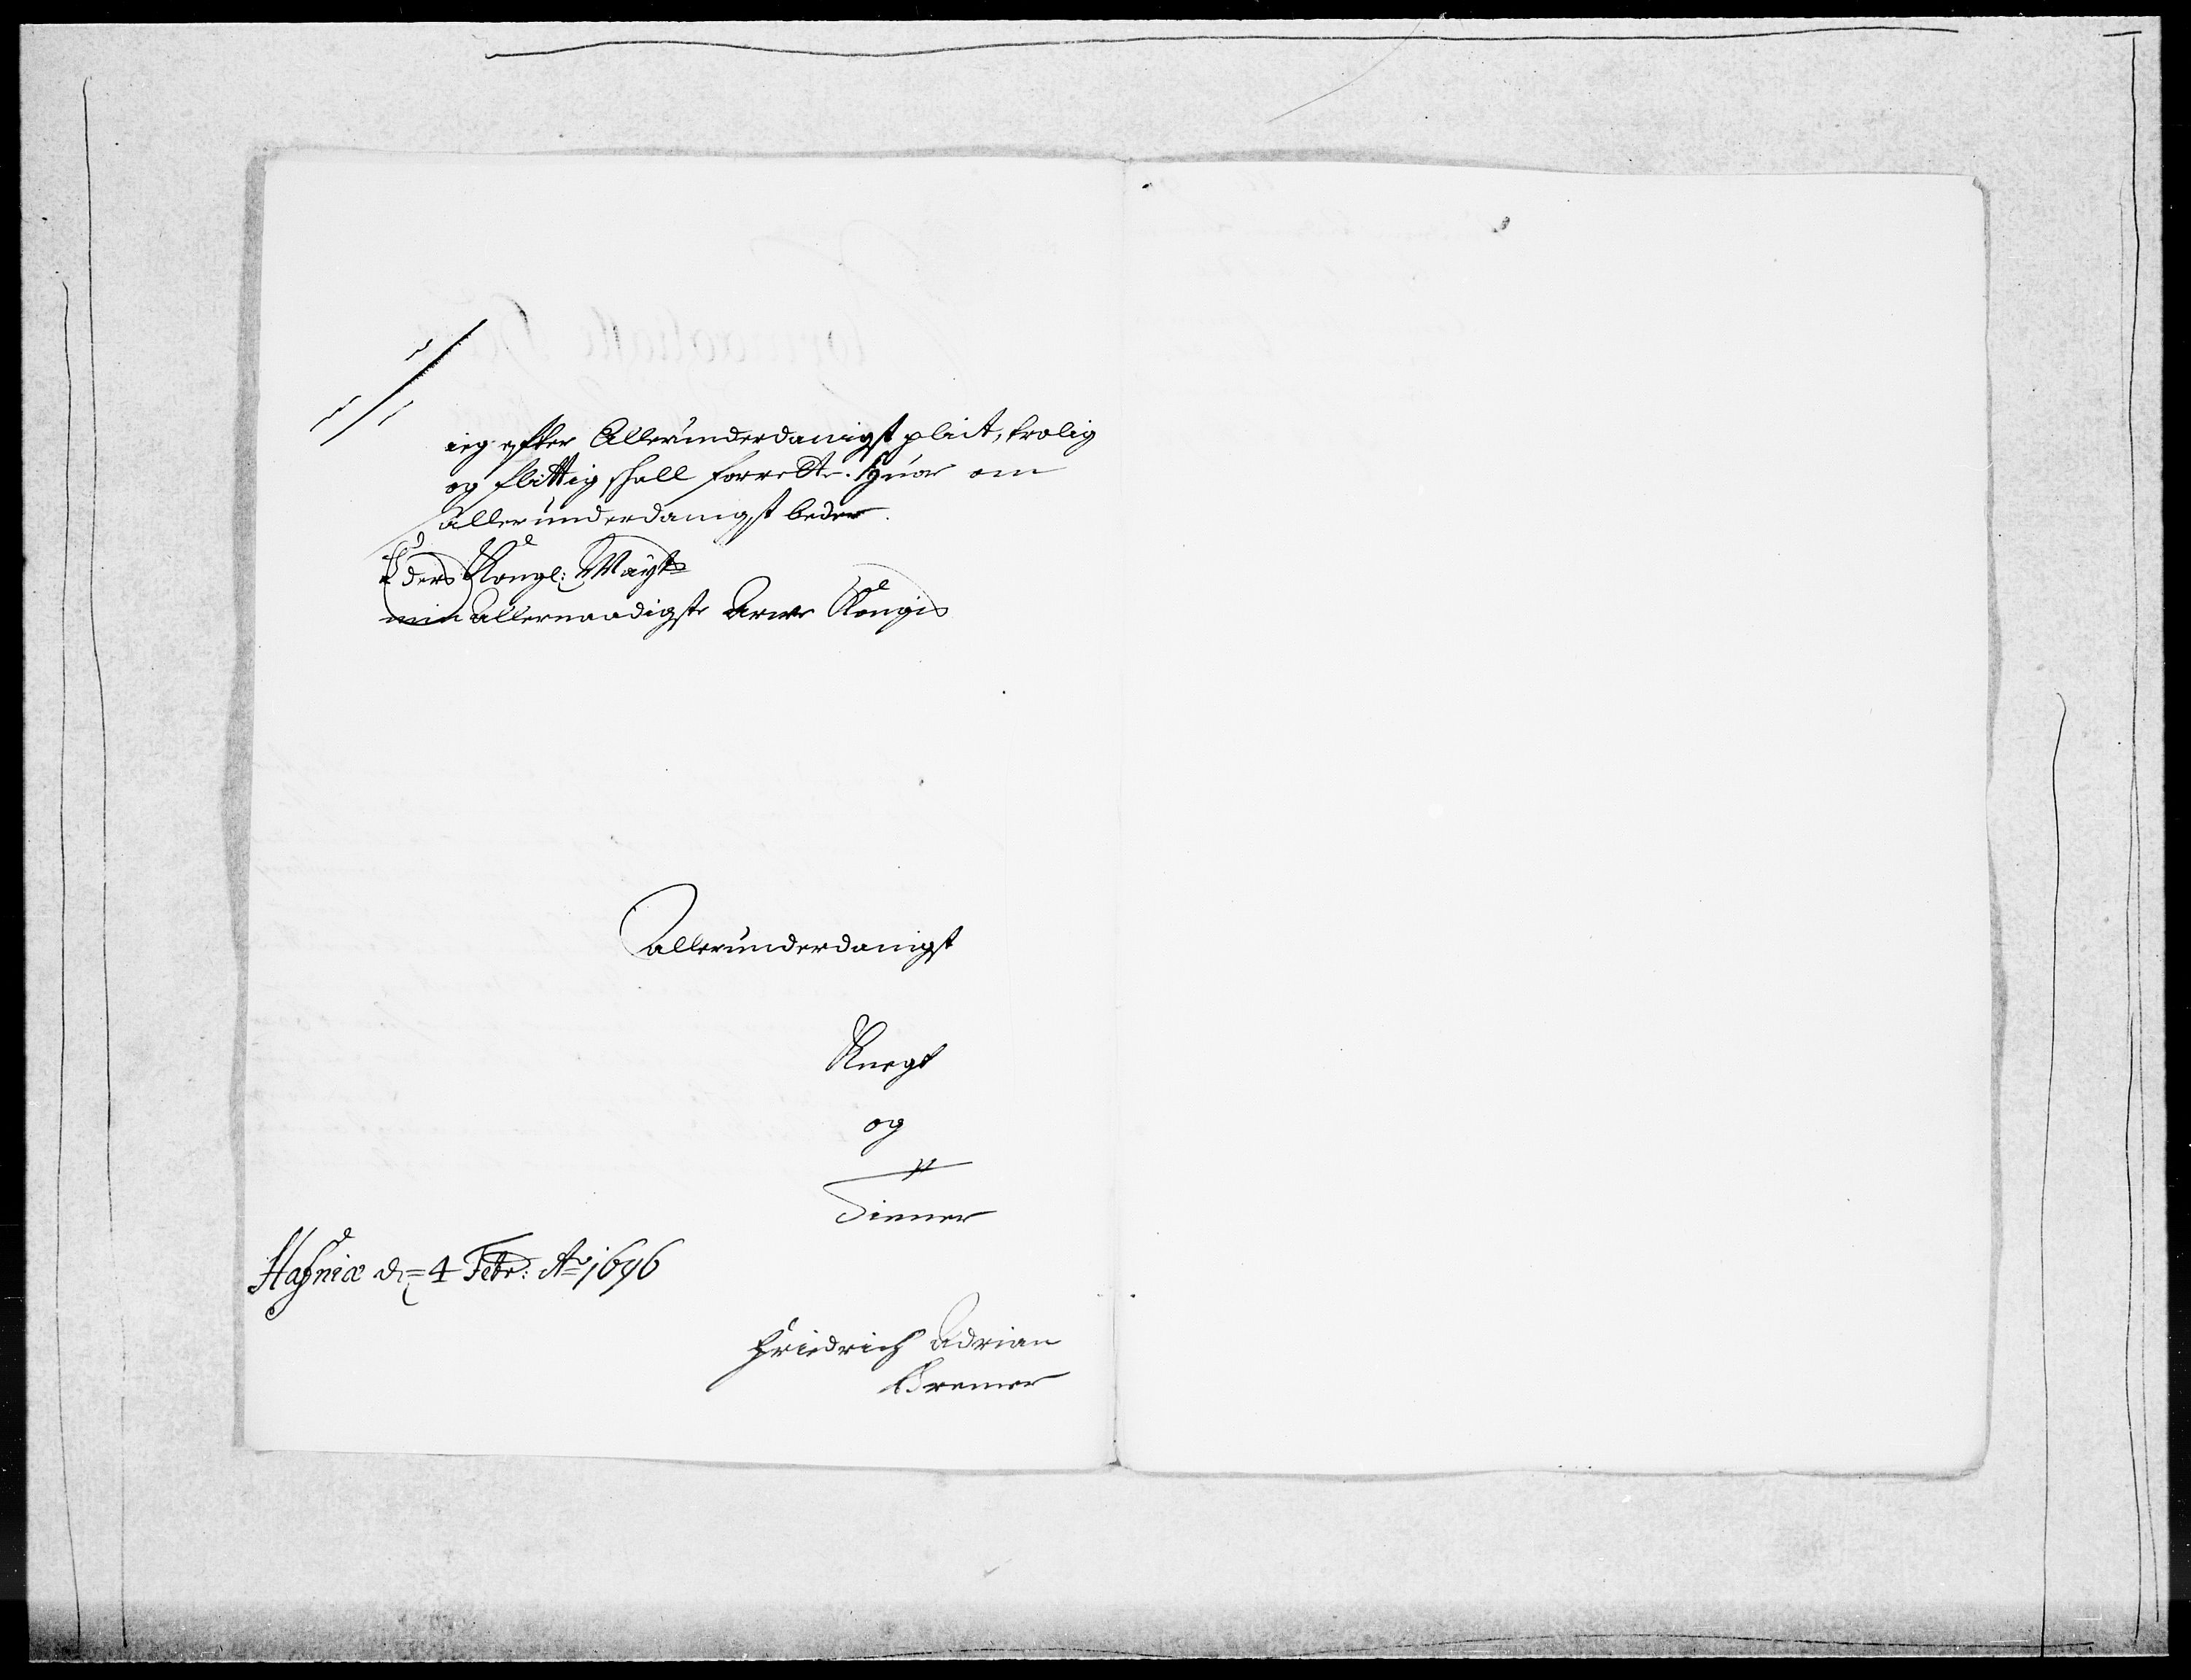 ieg efter Allerunderdanigst pleit, trolig
og flittig skall forrette. Huor om
allerunderdanigst beder.
Eders Kongl: Mayts
min allernaadigste Arve Kongis
allerunderdanigst
Knegt
og
Diener
Hafniæ d= 4 Febr: Ao 1696
Friedrich Adrian
Bremer